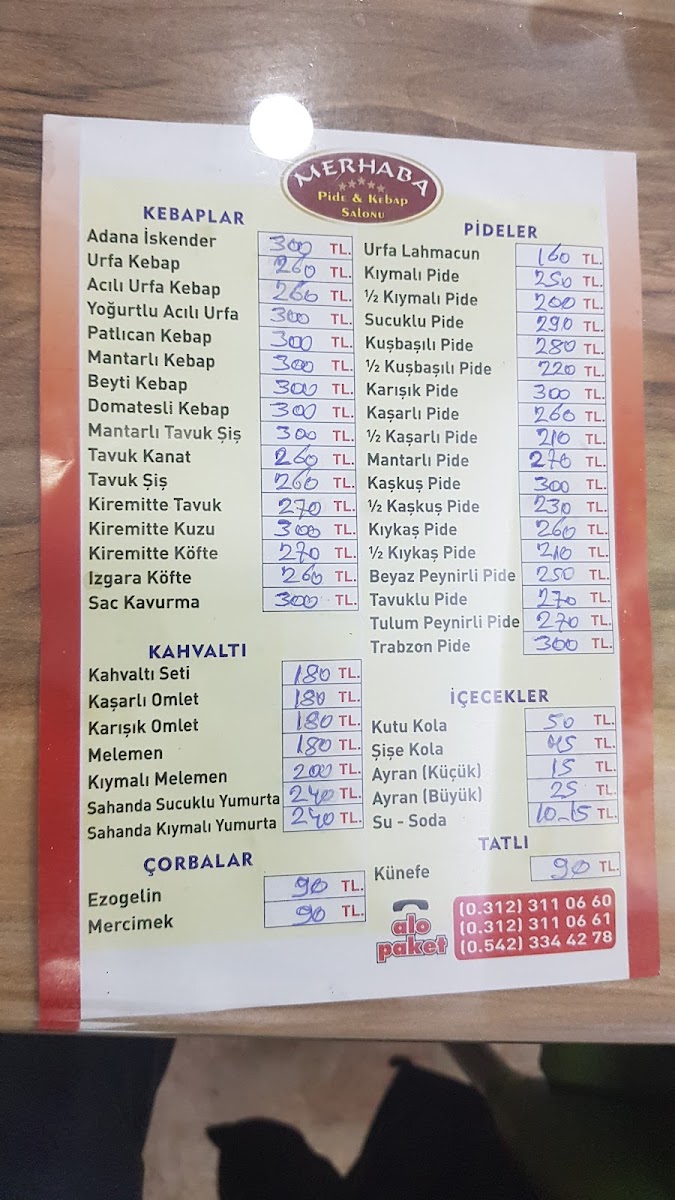 MERHABA
Pide & Kebap
Salonu
KEBAPLAR
Adana İskender 300 TL.
Urfa Kebap 260 TL.
Acılı Urfa Kebap 260 TL.
Yoğurtlu Acılı Urfa 300 TL.
Patlıcan Kebap 300 TL.
Mantarlı Kebap 300 TL.
Beyti Kebap 300 TL.
Domatesli Kebap 300 TL.
Mantarlı Tavuk Şiş 300 TL.
Tavuk Kanat 260 TL.
Tavuk Şiş 260 TL.
Kiremitte Tavuk 270 TL.
Kiremitte Kuzu 300 TL.
Kiremitte Köfte 270 TL.
Izgara Köfte 260 TL.
Sac Kavurma 300 TL.
KAHVALTI
Kahvaltı Seti 180 TL.
Kaşarlı Omlet 180 TL.
Karışık Omlet 180 TL.
Melemen 180 TL.
Kıymalı Melemen 200 TL.
Sahanda Sucuklu Yumurta 240 TL.
Sahanda Kıymalı Yumurta 240 TL.
ÇORBALAR
Ezogelin 90 TL.
Mercimek 90 TL.
PİDELER
Urfa Lahmacun 160 TL.
Kıymalı Pide 250 TL.
½ Kıymalı Pide 200 TL.
Sucuklu Pide 290 TL.
Kuşbaşılı Pide 280 TL.
½ Kuşbaşılı Pide 220 TL.
Karışık Pide 300 TL.
Kaşarlı Pide 260 TL.
½ Kaşarlı Pide 210 TL.
Mantarlı Pide 270 TL.
Kaşkuş Pide 300 TL.
½ Kaşkuş Pide 230 TL.
Kıykaş Pide 260 TL.
½ Kıykaş Pide 210 TL.
Beyaz Peynirli Pide 250 TL.
Tavuklu Pide 270 TL.
Tulum Peynirli Pide 270 TL.
Trabzon Pide 300 TL.
İÇECEKLER
Kutu Kola 50 TL.
Şişe Kola 45 TL.
Ayran (Küçük) 15 TL.
Ayran (Büyük) 25 TL.
Su - Soda 10-15 TL.
TATLI
Künefe 90 TL.
alo
paket
(0.312) 311 06 60
(0.312) 311 06 61
(0.542) 334 42 78